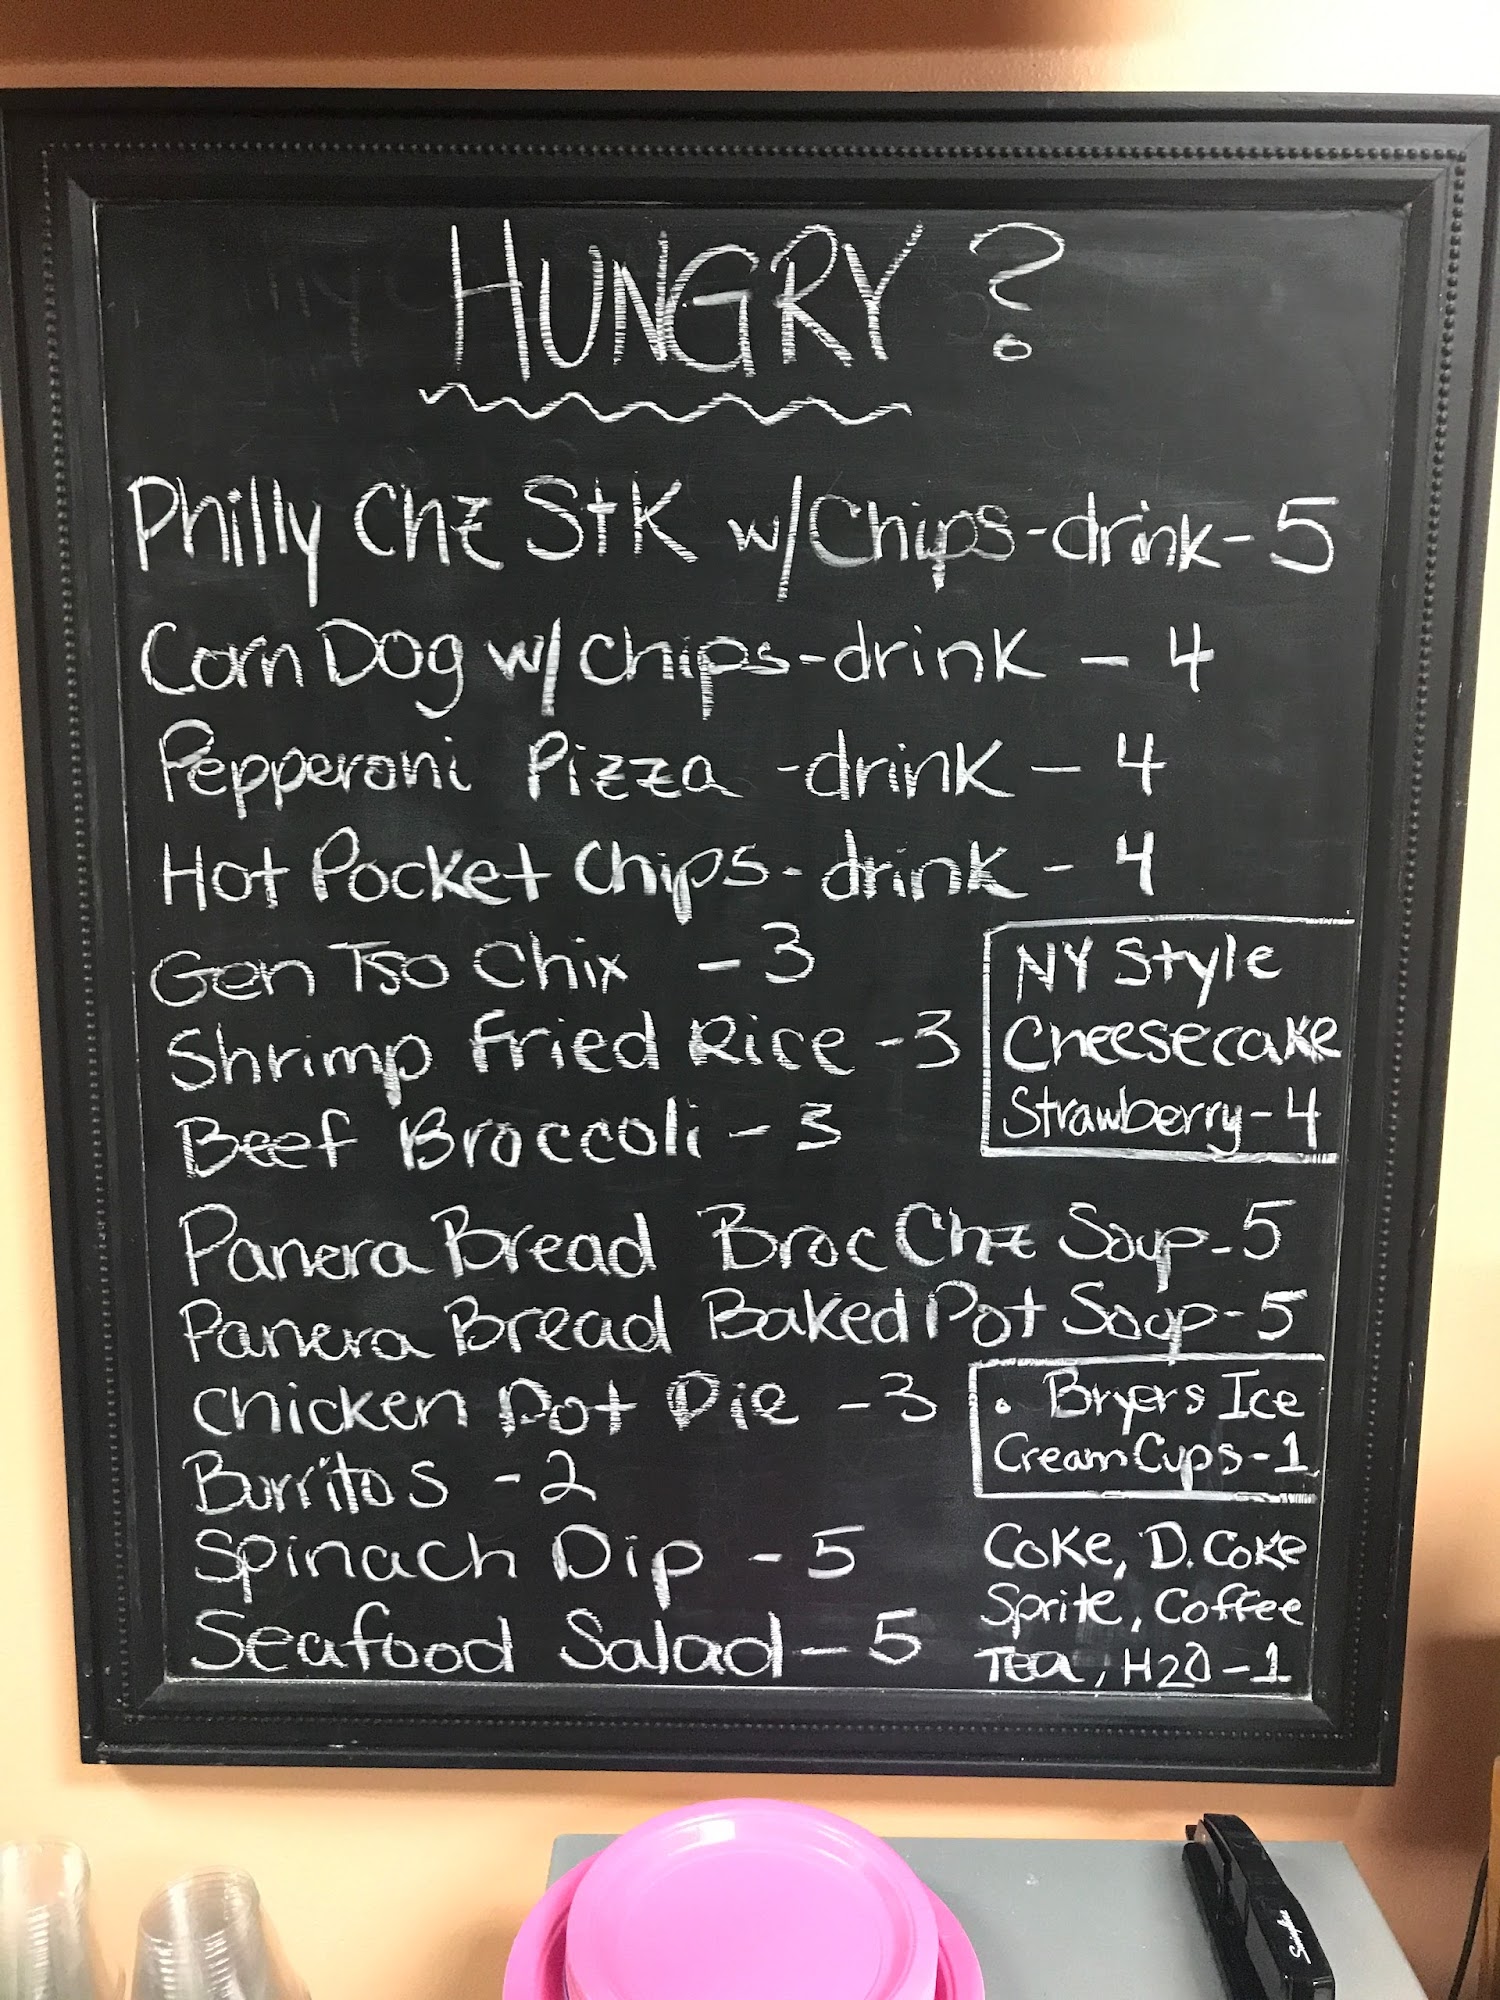 HUNGRY?
Philly Chz StK w/Chips-drink-5
Corn Dog w/chips-drink - 4
Pepperoni Pizza -drink - 4
Hot Pocket Chips-drink - 4
Gen Tso Chix - 3
Shrimp Fried Rice - 3
Beef Broccoli - 3
NY Style
Cheesecake
Strawberry-4
Panera Bread Broc Chz Soup-5
Panera Bread Baked Pot Soup-5
Chicken Pot Pie - 3
Burritos - 2
Spinach Dip - 5
Seafood Salad - 5
• Bryers Ice
Cream Cups-1
Coke, D. Coke
Sprite, Coffee
Tea, H2O-1